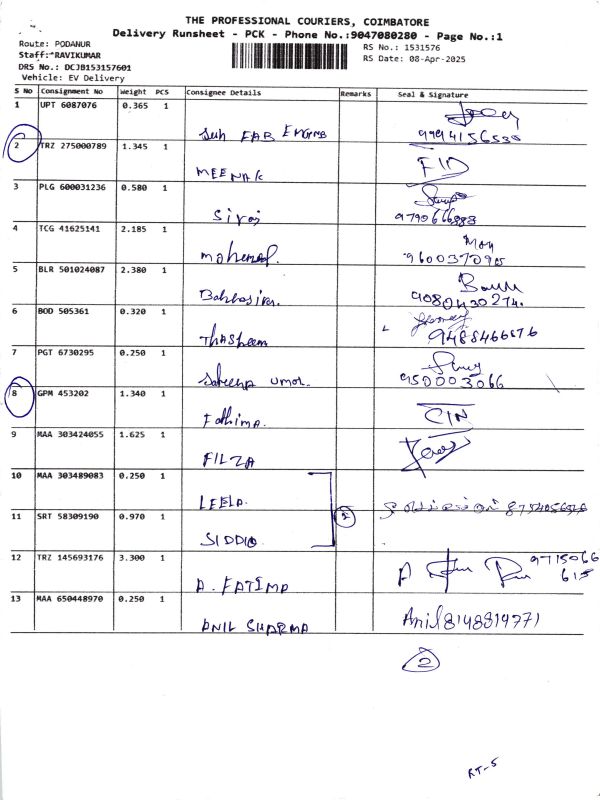 THE PROFESSIONAL COURIERS, COIMBATORE
Delivery Runsheet - PCK - Phone No.:9047080280 - Page No.:1
Route: PODANUR
RS No.: 1531576
Staff: RAVIKUMAR
RS Date: 08-Apr-2025
DRS No.: DCJB153157601
Vehicle: EV Delivery
S No Consignment No Weight PCS Consignee Details Remarks Seal & Signature
1 UPT 6087076 0.365 1
FAB
2 TRZ 275000789 1.345 1
MEENAK
3 PLG 600031236 0.580 1
Siraj
4 TCG 41625141 2.185 1
9600370915
5 BLR 501024087 2.380 1
6 BOD 505361 0.320 1
Thasleem 9488466676
7 PGT 6730295 0.250 1
950003066
8 GPM 453202 1.340 1
Fathima.
9 MAA 303424055 1.625 1
FILZA
10 MAA 303489083 0.250 1
LEELA
11 SRT 58309190 0.970 1
SIDDIQ
12 TRZ 145693176 3.300 1
9715066
615
A. FATIMA
13 MAA 650448970 0.250 1
Anil 8148819771
ANIL SHARMA
2
RT-5